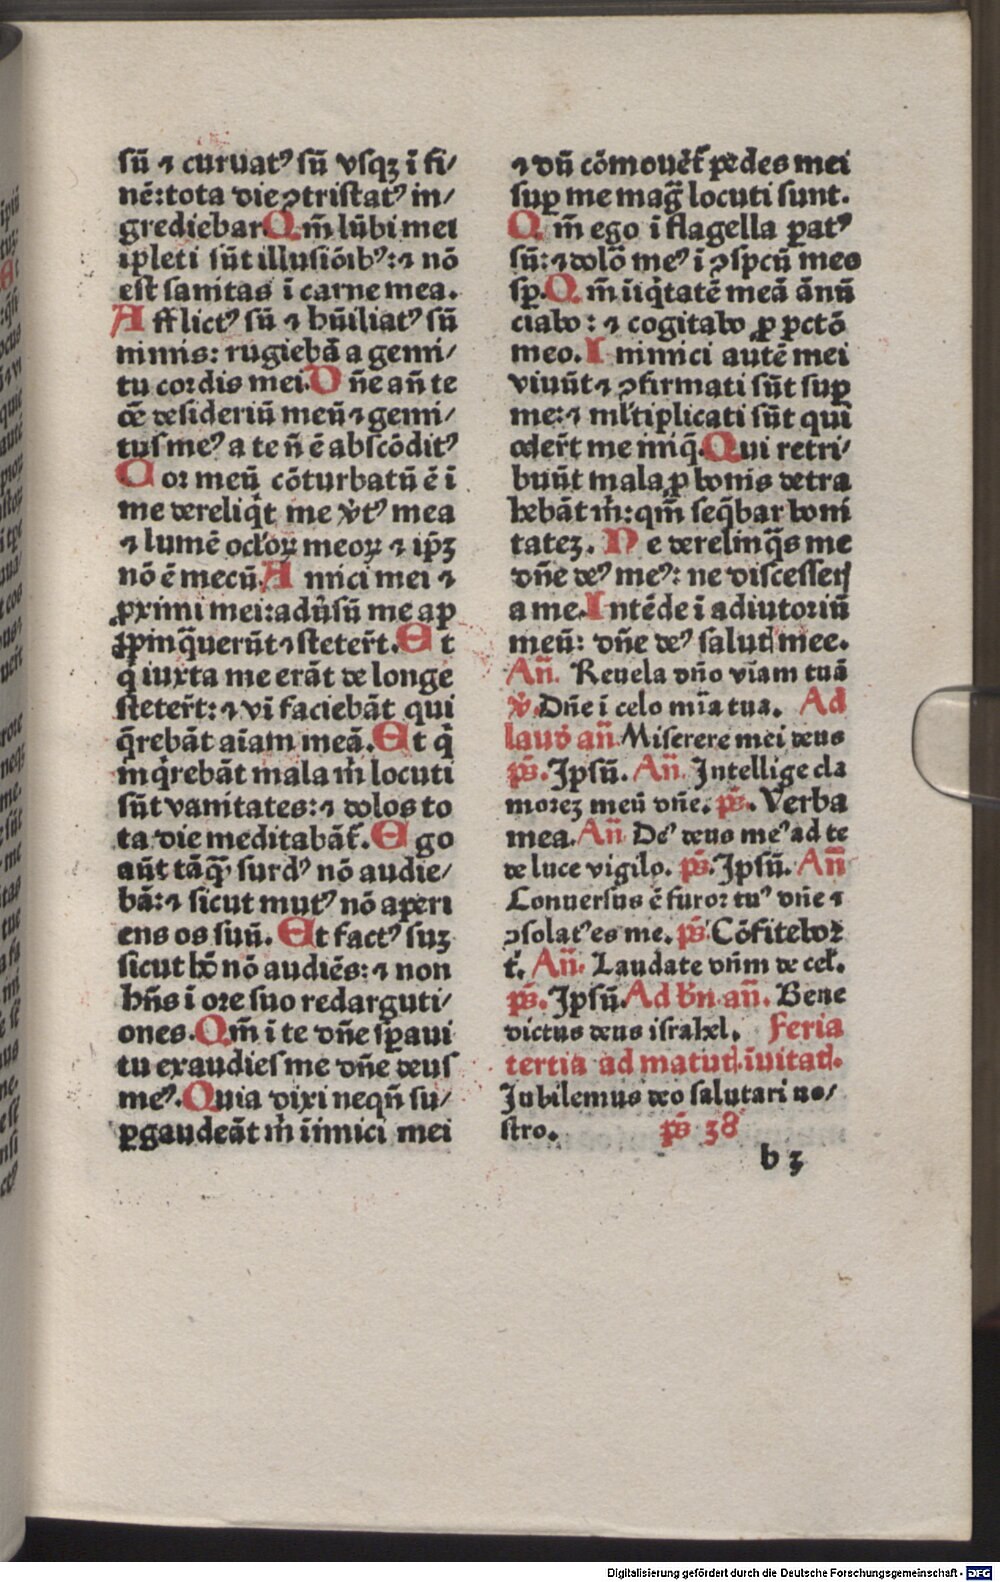 sū ⁊ curuatꝰ sū vsqꝫ ī fi/
nē: tota die ꝯtristatꝰ in/
grediebar Qm̄ lūbi mei
īpleti sūt illusiōibꝰ: ⁊ nō
est sanitas ī carne mea.
Afflictꝰ sū ⁊ hūiliatꝰ sū
nimis: rugiebā a gemi/
tu cordis mei. Dn̄e an̄ te
oē desideriū meū ⁊ gemi/
tus meꝰ a te n̄ ē abscōditꝰ
Cor meū cōturbatū ē ī
me dereliq̄t me v̄tꝰ mea
⁊ lumē ocl'oꝝ meoꝝ ⁊ ip̄ꝫ
nō ē mecū. Amici mei ⁊
ꝓximi mei: adūsū me ap
ꝓpinq̄uerūt ⁊ steter̄t. Et
q̄ iuxta me erāt de longe
steter̄t: ⁊ vī faciebāt qui
q̄rebāt aīam meā. Et q̄
inq̄rebāt mala m̄ locuti
sūt vanitates: ⁊ dolos to
ta die meditabāt̄. Ego
aūt tāq̄ꝫ surdꝰ nō audie/
bā: ⁊ sicut mutꝰ nō aperi
ens os suū. Et factꝰ suꝫ
sicut hō nō audiēs: ⁊ non
hn̄s ī ore suo redarguti/
ones. Qm̄ ī te dn̄e sꝑaui
tu exaudies me dn̄e deus
meꝰ. Quia dixi neqn̄ su/
ꝑgaudeāt m̄ īimici mei
⁊ dū cōmouēt̄ pedes mei
suꝑ me maḡ locuti sunt.
Qm̄ ego ī flagella ꝑatꝰ
sū: ⁊ dolō meꝰ ī ꝯspcū meo
sꝑ. Qm̄ īiq̄tatē meā ānū
ciabo: ⁊ cogitabo ꝓ pctō
meo. Inimici autē mei
viuūt ⁊ ꝯfirmati sūt suꝑ
me: ⁊ ml'tiplicati sūt qui
oder̄t me iniq̄. Qui retri/
buūt mala ꝓ bonis detra
hebāt m̄: qm̄ seq̄bar boni
tateꝫ. Ne derelinq̄s me
dn̄e deꝰ meꝰ: ne discesserꝭ
a me. Intēde ī adiutoriū
meū: dn̄e deꝰ salutꝭ mee.
An̄. Reuela dn̄o viam tuā
v̄. Dn̄e ī celo mīa tua. Ad
laud' an̄ Miserere mei deus
ps̄. Ipsū. An̄. Intellige cla
moreꝫ meū dn̄e. ps̄. Verba
mea. An̄ Deꝰ deus meꝰ ad te
de luce vigilo. ps̄. Ipsū. An̄
Conuersus ē furor tuꝰ dn̄e ⁊
ꝯsolatꝰ es me. ps̄. Cōfitebor
t̄. An̄. Laudate dn̄m de cel'.
ps̄. Ipsū. Ad bn̄. an̄. Bene
dictus deus israhel. Feria
tertia ad matut̄. īuitat̄.
Jubilemus deo salutari no/
stro. ps̄ 38
b 3
Digitalisierung gefördert durch die Deutsche Forschungsgemeinschaft - DFG